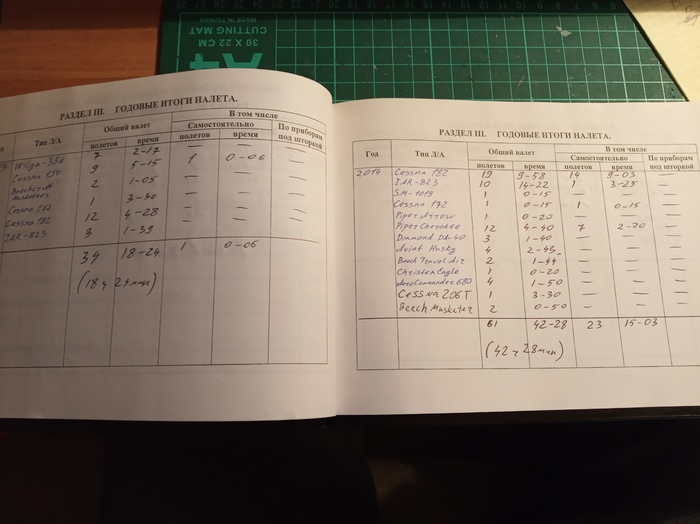 MADE IN TAIWAN
CUTTING MAT
30 X 22 CM
A4
РАЗДЕЛ III. ГОДОВЫЕ ИТОГИ НАЛЕТА.
Тип Л/А Общий налет В том числе
Самостоятельно По приборам под шторкой
полетов время полетов время
Wilga-35A 7 2-17 — — —
Cessna 150 9 5-15 1 0-06 —
Beechcraft Musketeer 2 1-05 — — —
Cessna 182 1 3-40 — — —
Cessna 182 12 4-28 — — —
IAR-823 3 1-39 — — —
34 18-24 1 0-06
(18ч 24мин)
РАЗДЕЛ III. ГОДОВЫЕ ИТОГИ НАЛЕТА.
Год Тип Л/А Общий налет В том числе
Самостоятельно По приборам под шторкой
полетов время полетов время
2014 Cessna 182 19 9-58 14 9-03 —
IAR-823 10 14-22 1 3-25 —
SM-1019 1 0-15 — — —
Cessna 172 1 0-15 1 0-15 —
Piper Arrow 1 0-20 — — —
Piper Cherokee 12 4-40 7 2-20 —
Diamond DA-40 3 1-40 — — —
Aviat Husky 4 2-45 — — —
Beech Travel Air 2 1-44 — — —
Christen Eagle 1 0-20 — — —
AeroCommander 680 4 1-50 — — —
Cessna 206T 1 3-30 — — —
Beech Musketer 2 0-50 — — —
61 42-28 23 15-03
(42ч 28мин)